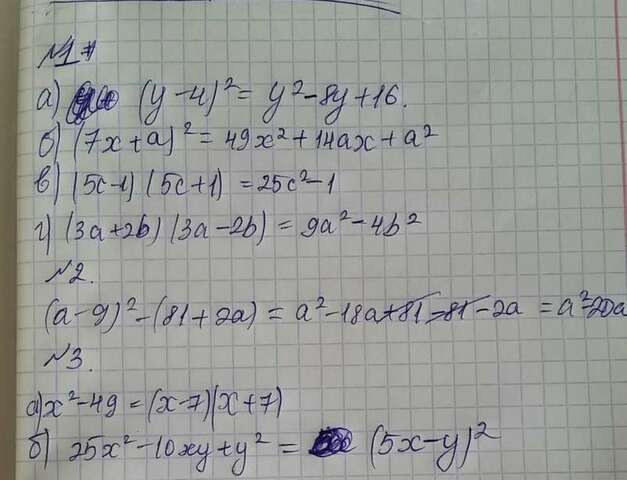 №1
а) (y-4)² = y²-8y+16.
б) (7x+a)² = 49x²+14ax+a²
в) (5c-1)(5c+1) = 25c²-1
г) (3a+2b)(3a-2b) = 9a²-4b²
№2.
(a-9)²-(81+2a) = a²-18a+81-81-2a = a²-20a
№3.
а) x²-49 = (x-7)(x+7)
б) 25x²-10xy+y² = (5x-y)²